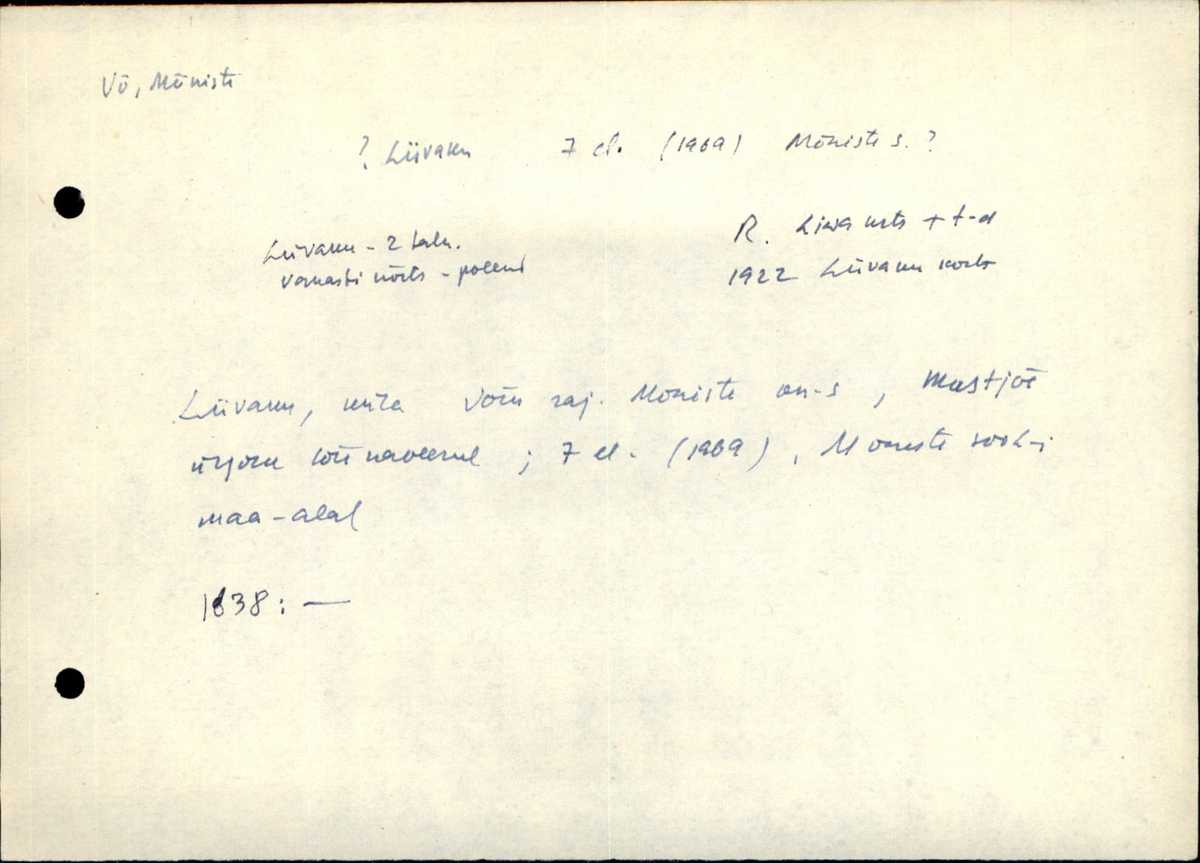 Võ, Mõniste
? Liivaku 7 el. (1969) Mõniste s. ?
Liivaku - 2 talu.
vanasti kõrts - polend
R. Liwa krts + t-d
1922 Liivaku kõrts
Liivaku, küla Võru raj. Mõniste kn-s, Mustjõe
ürgoru lõunaveerul ; 7 el. (1969), Mõniste sovh-i
maa-alal
1838 : —